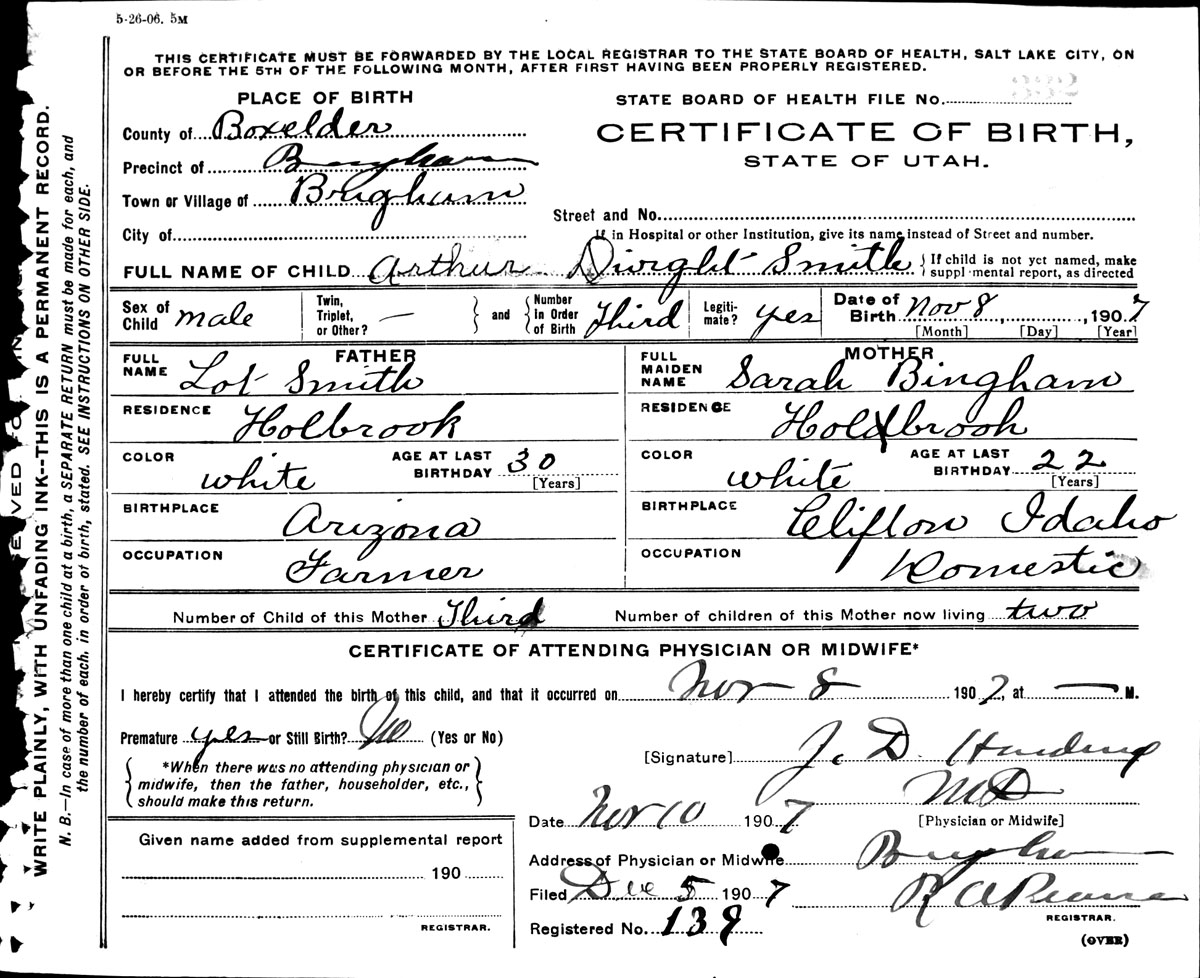 5-26-06. 5M
THIS CERTIFICATE MUST BE FORWARDED BY THE LOCAL REGISTRAR TO THE STATE BOARD OF HEALTH, SALT LAKE CITY, ON
OR BEFORE THE 5TH OF THE FOLLOWING MONTH, AFTER FIRST HAVING BEEN PROPERLY REGISTERED.
PLACE OF BIRTH
County of Boxelder
Precinct of Brigham
Town or Village of Brigham
City of
STATE BOARD OF HEALTH FILE No. 332
CERTIFICATE OF BIRTH,
STATE OF UTAH.
Street and No.
If in Hospital or other Institution, give its name instead of Street and number.
FULL NAME OF CHILD Arthur Dwight Smith { If child is not yet named, make
supplemental report, as directed
Sex of Child male Twin, Triplet, or Other? — } and { Number In Order of Birth Third Legiti-mate? yes Date of Birth Nov 8, 1907
[Month] [Day] [Year]
FATHER
FULL NAME Lot Smith
RESIDENCE Holbrook
COLOR white AGE AT LAST BIRTHDAY 30 [Years]
BIRTHPLACE Arizona
OCCUPATION Farmer
MOTHER
FULL MAIDEN NAME Sarah Bingham
RESIDENCE Holbrook
COLOR white AGE AT LAST BIRTHDAY 22 [Years]
BIRTHPLACE Clifton Idaho
OCCUPATION Domestic
Number of Child of this Mother Third Number of children of this Mother now living two
CERTIFICATE OF ATTENDING PHYSICIAN OR MIDWIFE*
I hereby certify that I attended the birth of this child, and that it occurred on Nov 8 1907, at — M.
Premature yes or Still Birth? No (Yes or No)
{ *When there was no attending physician or
midwife, then the father, householder, etc.,
should make this return. }
[Signature] J. D. Harding
MD
[Physician or Midwife]
Date Nov 10 1907
Address of Physician or Midwife Brigham
Filed Dec 5 1907 R A Pearse
REGISTRAR.
Registered No. 139
(OVER)
Given name added from supplemental report
190
REGISTRAR.
WRITE PLAINLY, WITH UNFADING INK--THIS IS A PERMANENT RECORD.
N. B.—In case of more than one child at a birth, a SEPARATE RETURN must be made for each, and
the number of each, in order of birth, stated. SEE INSTRUCTIONS ON OTHER SIDE.